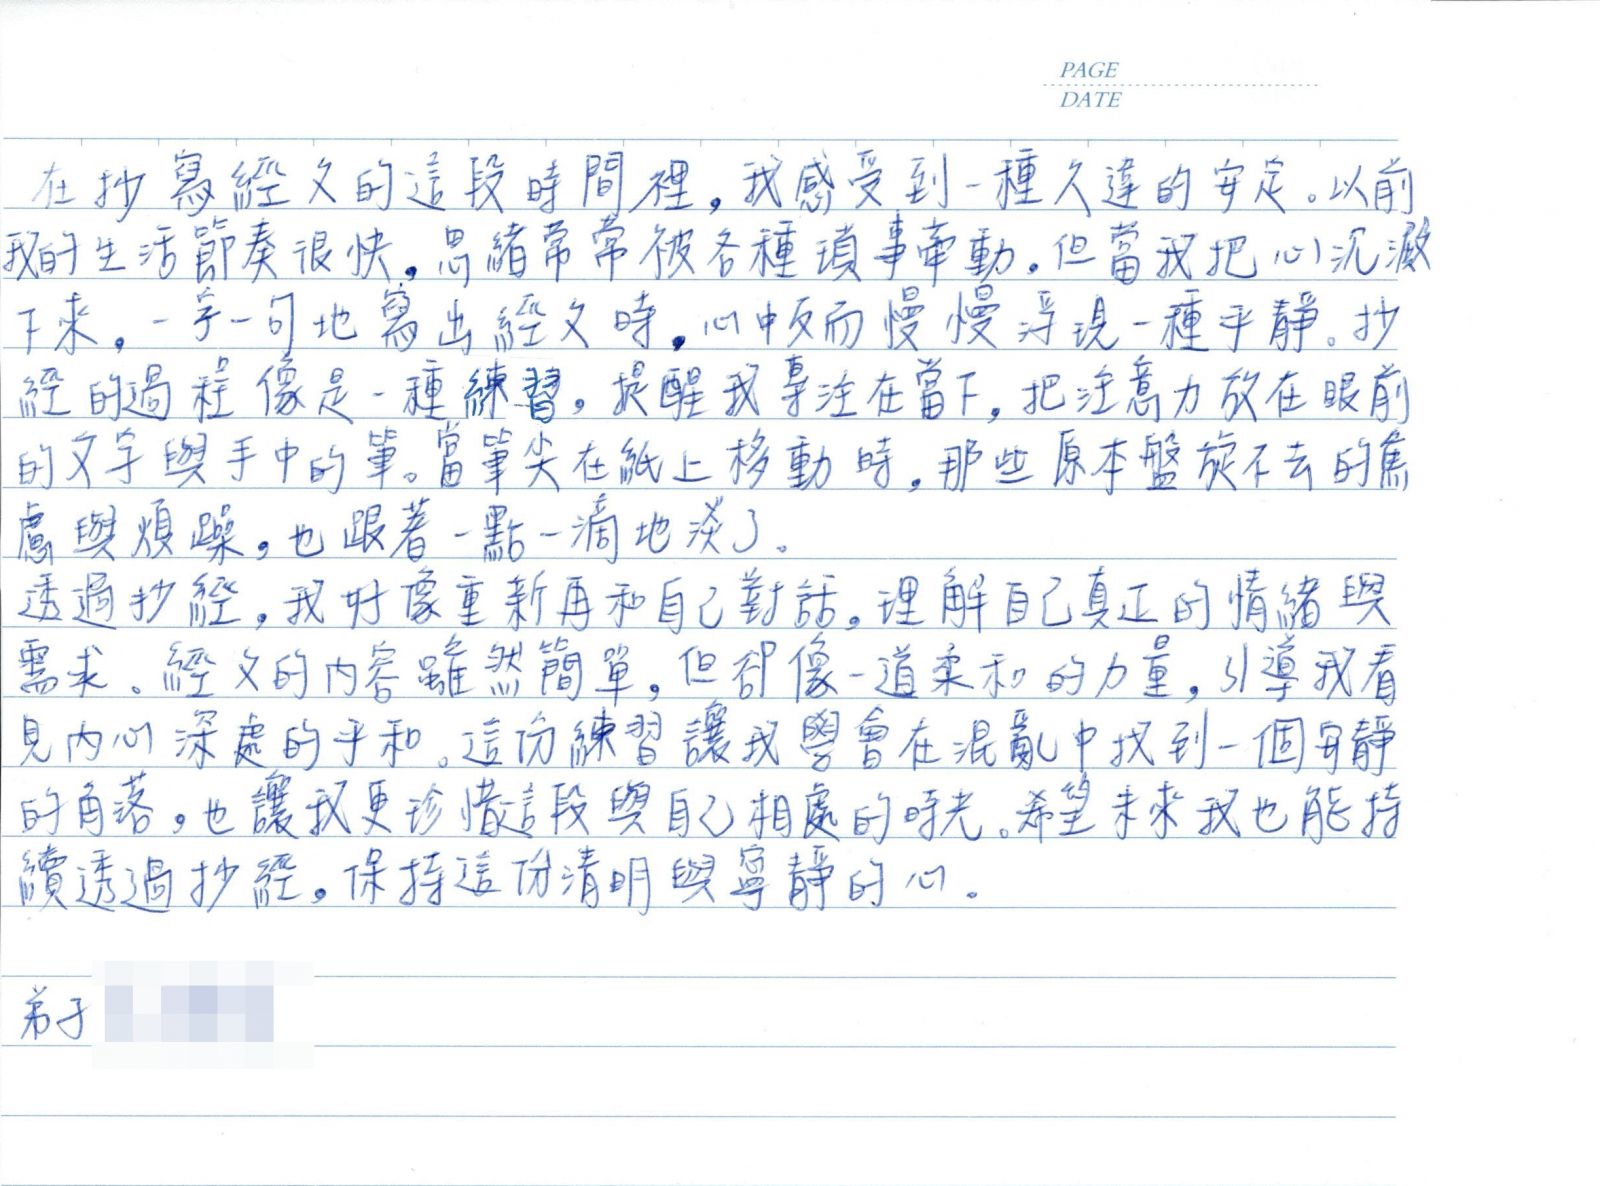 PAGE
DATE
在抄寫經文的這段時間裡，我感受到一種久違的安定。以前
我的生活節奏很快，思緒常常被各種瑣事牽動，但當我把心沉澱
下來，一字一句地寫出經文時，心中反而慢慢浮現一種平靜。抄
經的過程像是一種練習，提醒我專注在當下，把注意力放在眼前
的文字與手中的筆。當筆尖在紙上移動時，那些原本盤旋不去的焦
慮與煩躁，也跟著一點一滴地淡了。
透過抄經，我好像重新再和自己對話，理解自己真正的情緒與
需求。經文的內容雖然簡單，但卻像一道柔和的力量，引導我看
見內心深處的平和。這份練習讓我學會在混亂中找到一個安靜
的角落，也讓我更珍惜這段與自己相處的時光。希望未來我也能持
續透過抄經，保持這份清明與寧靜的心。
弟子